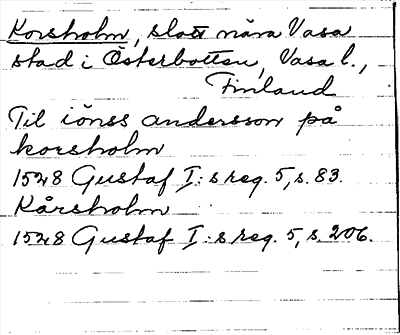 Korsholm, slott nära Vasa
stad i Österbotten, Vasa l.,
Finland
Til iönss andersson på
korsholm
1548 Gustaf I:s reg. 5, s. 83.
Kårsholm
1548 Gustaf I:s reg. 5, s. 206.